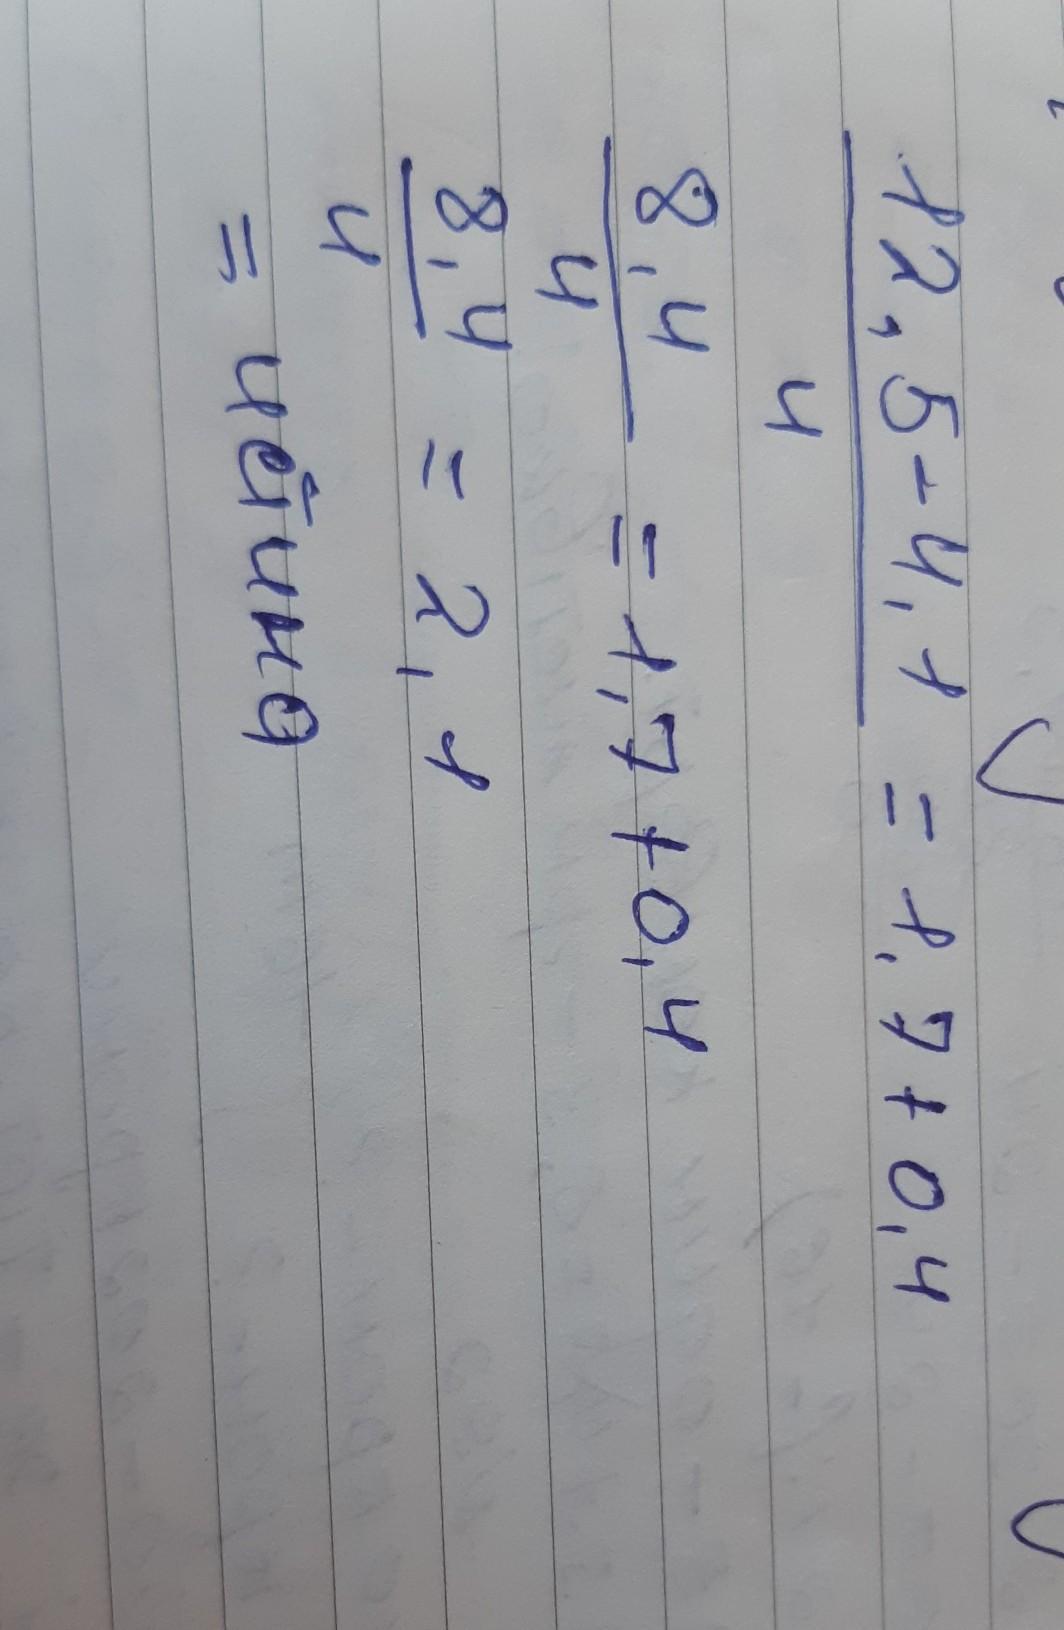 12,5-4,1 = 1,7+0,4
4
8,4 = 1,7+0,4
4
8,4 = 2,1
4
= истина